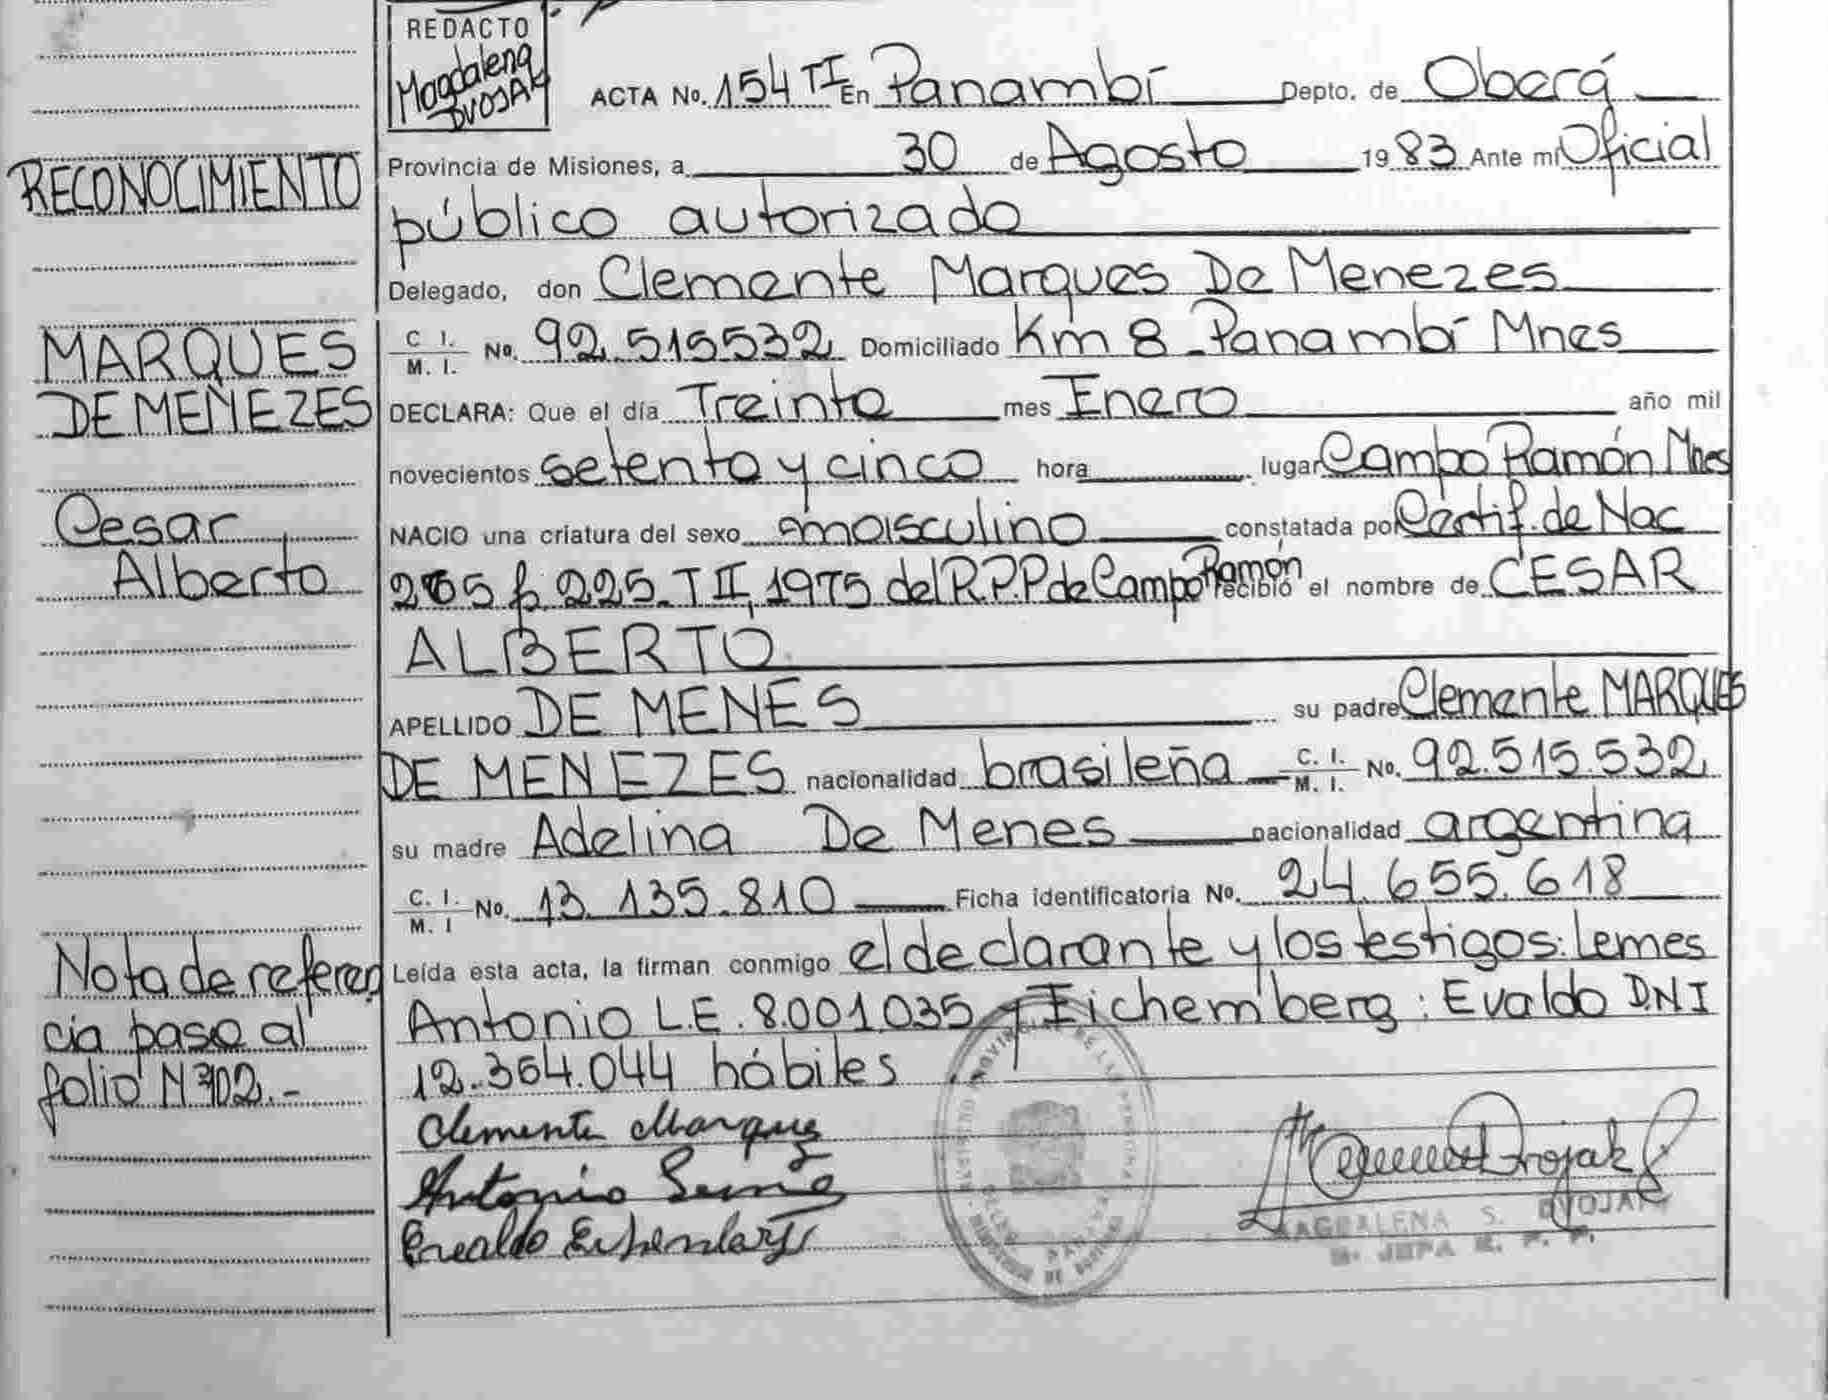 REDACTO
Magdalena
DVOJAK
ACTA No. 154 TI En Panambí Depto. de Oberá
Provincia de Misiones, a 30 de Agosto 1983 Ante mí Oficial
público autorizado
Delegado, don Clemente Marques De Menezes
C. I. M. I. No. 92.515532 Domiciliado Km 8 Panambí Mnes
DECLARA: Que el día Treinta mes Enero año mil
novecientos setenta y cinco hora lugar Campo Ramón Mnes
NACIO una criatura del sexo masculino constatada por Certif. de Nac
265 f 225 T II, 1975 del R.P.P de Campo Ramón recibió el nombre de CESAR
ALBERTO
APELLIDO DE MENES su padre Clemente MARQUES
DE MENEZES nacionalidad brasileña C. I. M. I. No. 92.515.532
su madre Adelina De Menes nacionalidad argentina
C. I. M. I No. 13.135.810 Ficha identificatoria No. 24.655.618
Leída esta acta, la firman conmigo el declarante y los testigos: Lemes
Antonio L.E. 8.001.035 y Eichemberg: Evaldo D.N.I
12.364.044 hábiles
Clemente Marques
Antonio
Evaldo
MAGDALENA S. DVOJAK
RECONOCIMIENTO
MARQUES
DE MENEZES
Cesar
Alberto
Nota de referen
cia paso al
folio Nº 102.-